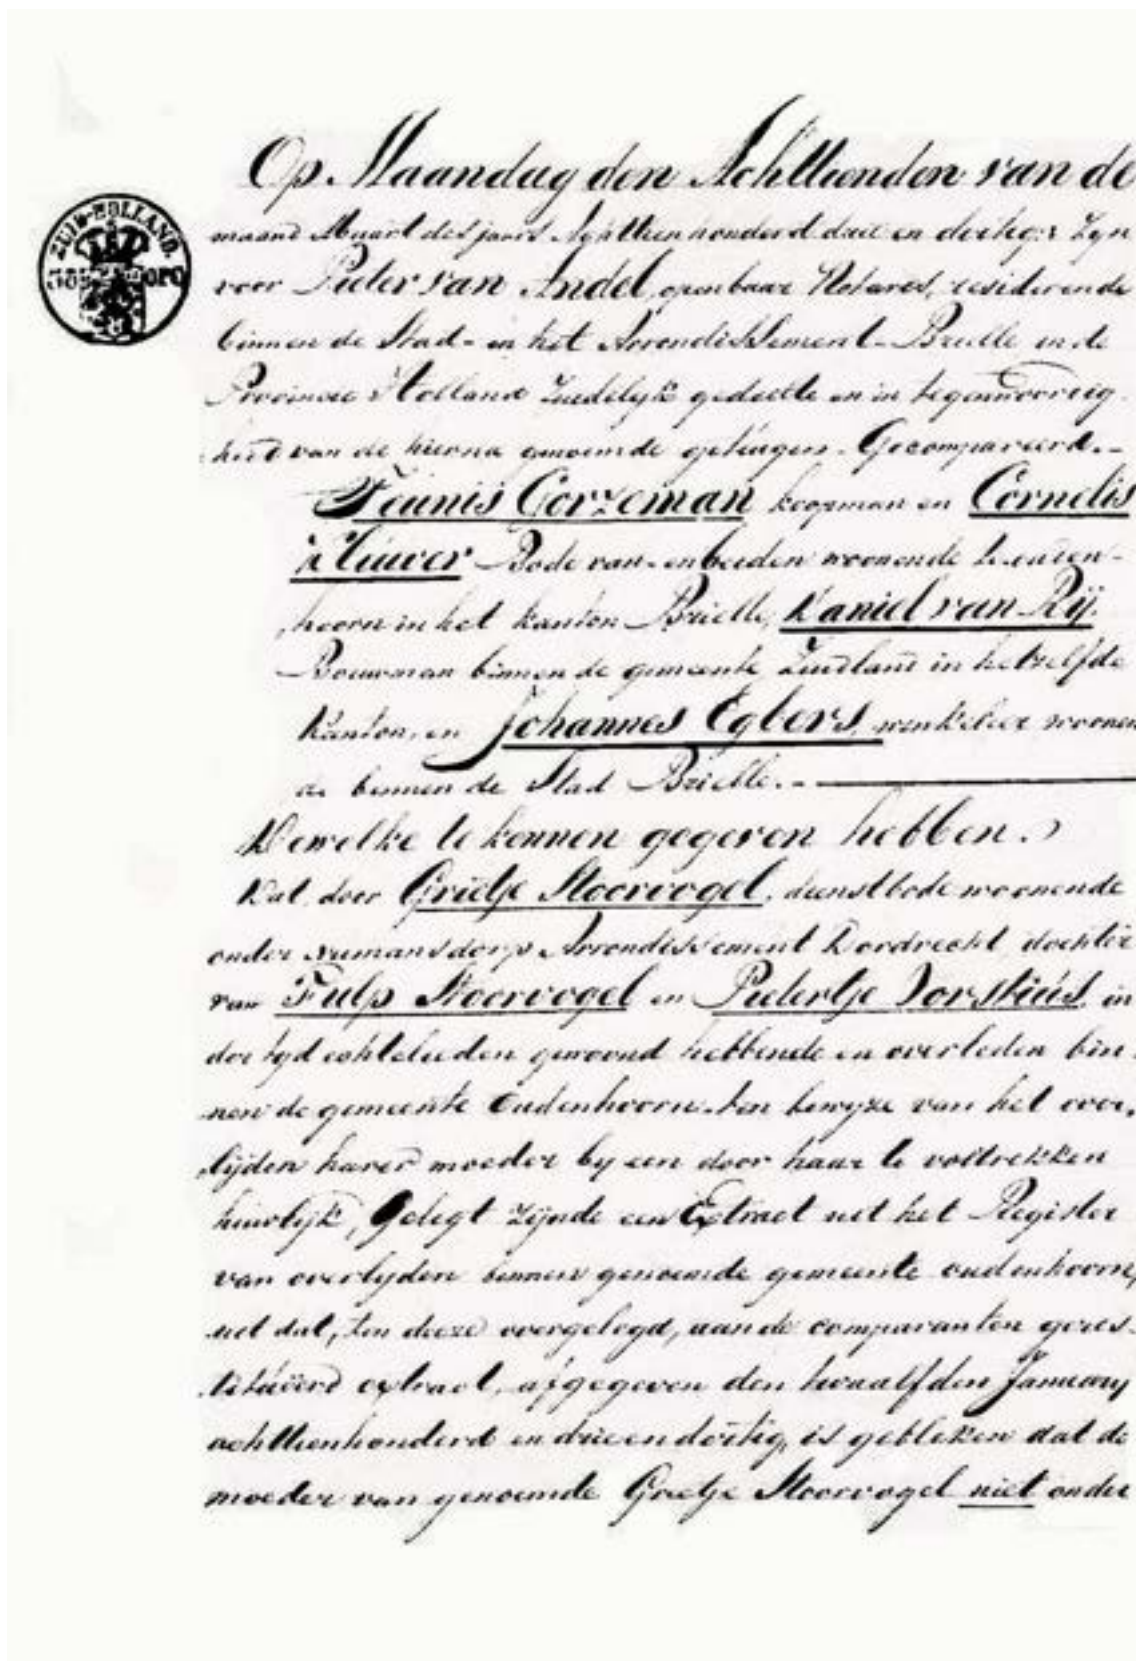 ZUID-HOLLAND.
Op Maandag den Achttienden van de
maand Maart des jaars Achttienhonderd drie en dertig: Zyn
voor Pieter van Andel, openbaar Notaris, resideerende
binnen de Stad- en het Arrondissement- Brielle in de
Provincie Holland Zuidelyk gedeelte en in tegenwoordig-
heid van de hierna genoemde getuigen. Gecompareerd.-
Teunis Gorzeman koopman en Cornelis
Bode van- en beiden woonende te ouden-
hoorn in het kanton Brielle, Daniel van Rij.
Bouwman binnen de gemeente Zuidland in hetzelfde
Kanton, en Johannes Egbers, winkelier woonen
de binnen de Stad Brielle.-
Dewelke te kennen gegeven hebben.
Dat door Grietje Stoorvogel, dienstbode woonende
onder Numansdorp Arrondissement Dordrecht, dochter
van Fulp Stoorvogel en Pietertje Vorstius, in
der tyd echtelieden gewoond hebbende en overleden bin-
nen de gemeente Oudenhoorn. ten bewyze van het over-
lijden harer moeder by een door haar te voltrekken
huwlijk, Gelegt zijnde een Extract uit het Register
van overlyden binnen genoemde gemeente oudenhoorn,
uit dat, ten deeze overgelegd, aan de comparanten geres-
titueerd extract, afgegeven den twaalfden January
achttienhonderd en drie en dertig, is gebleken dat de
moeder van genoemde Grietje Stoorvogel niet onder